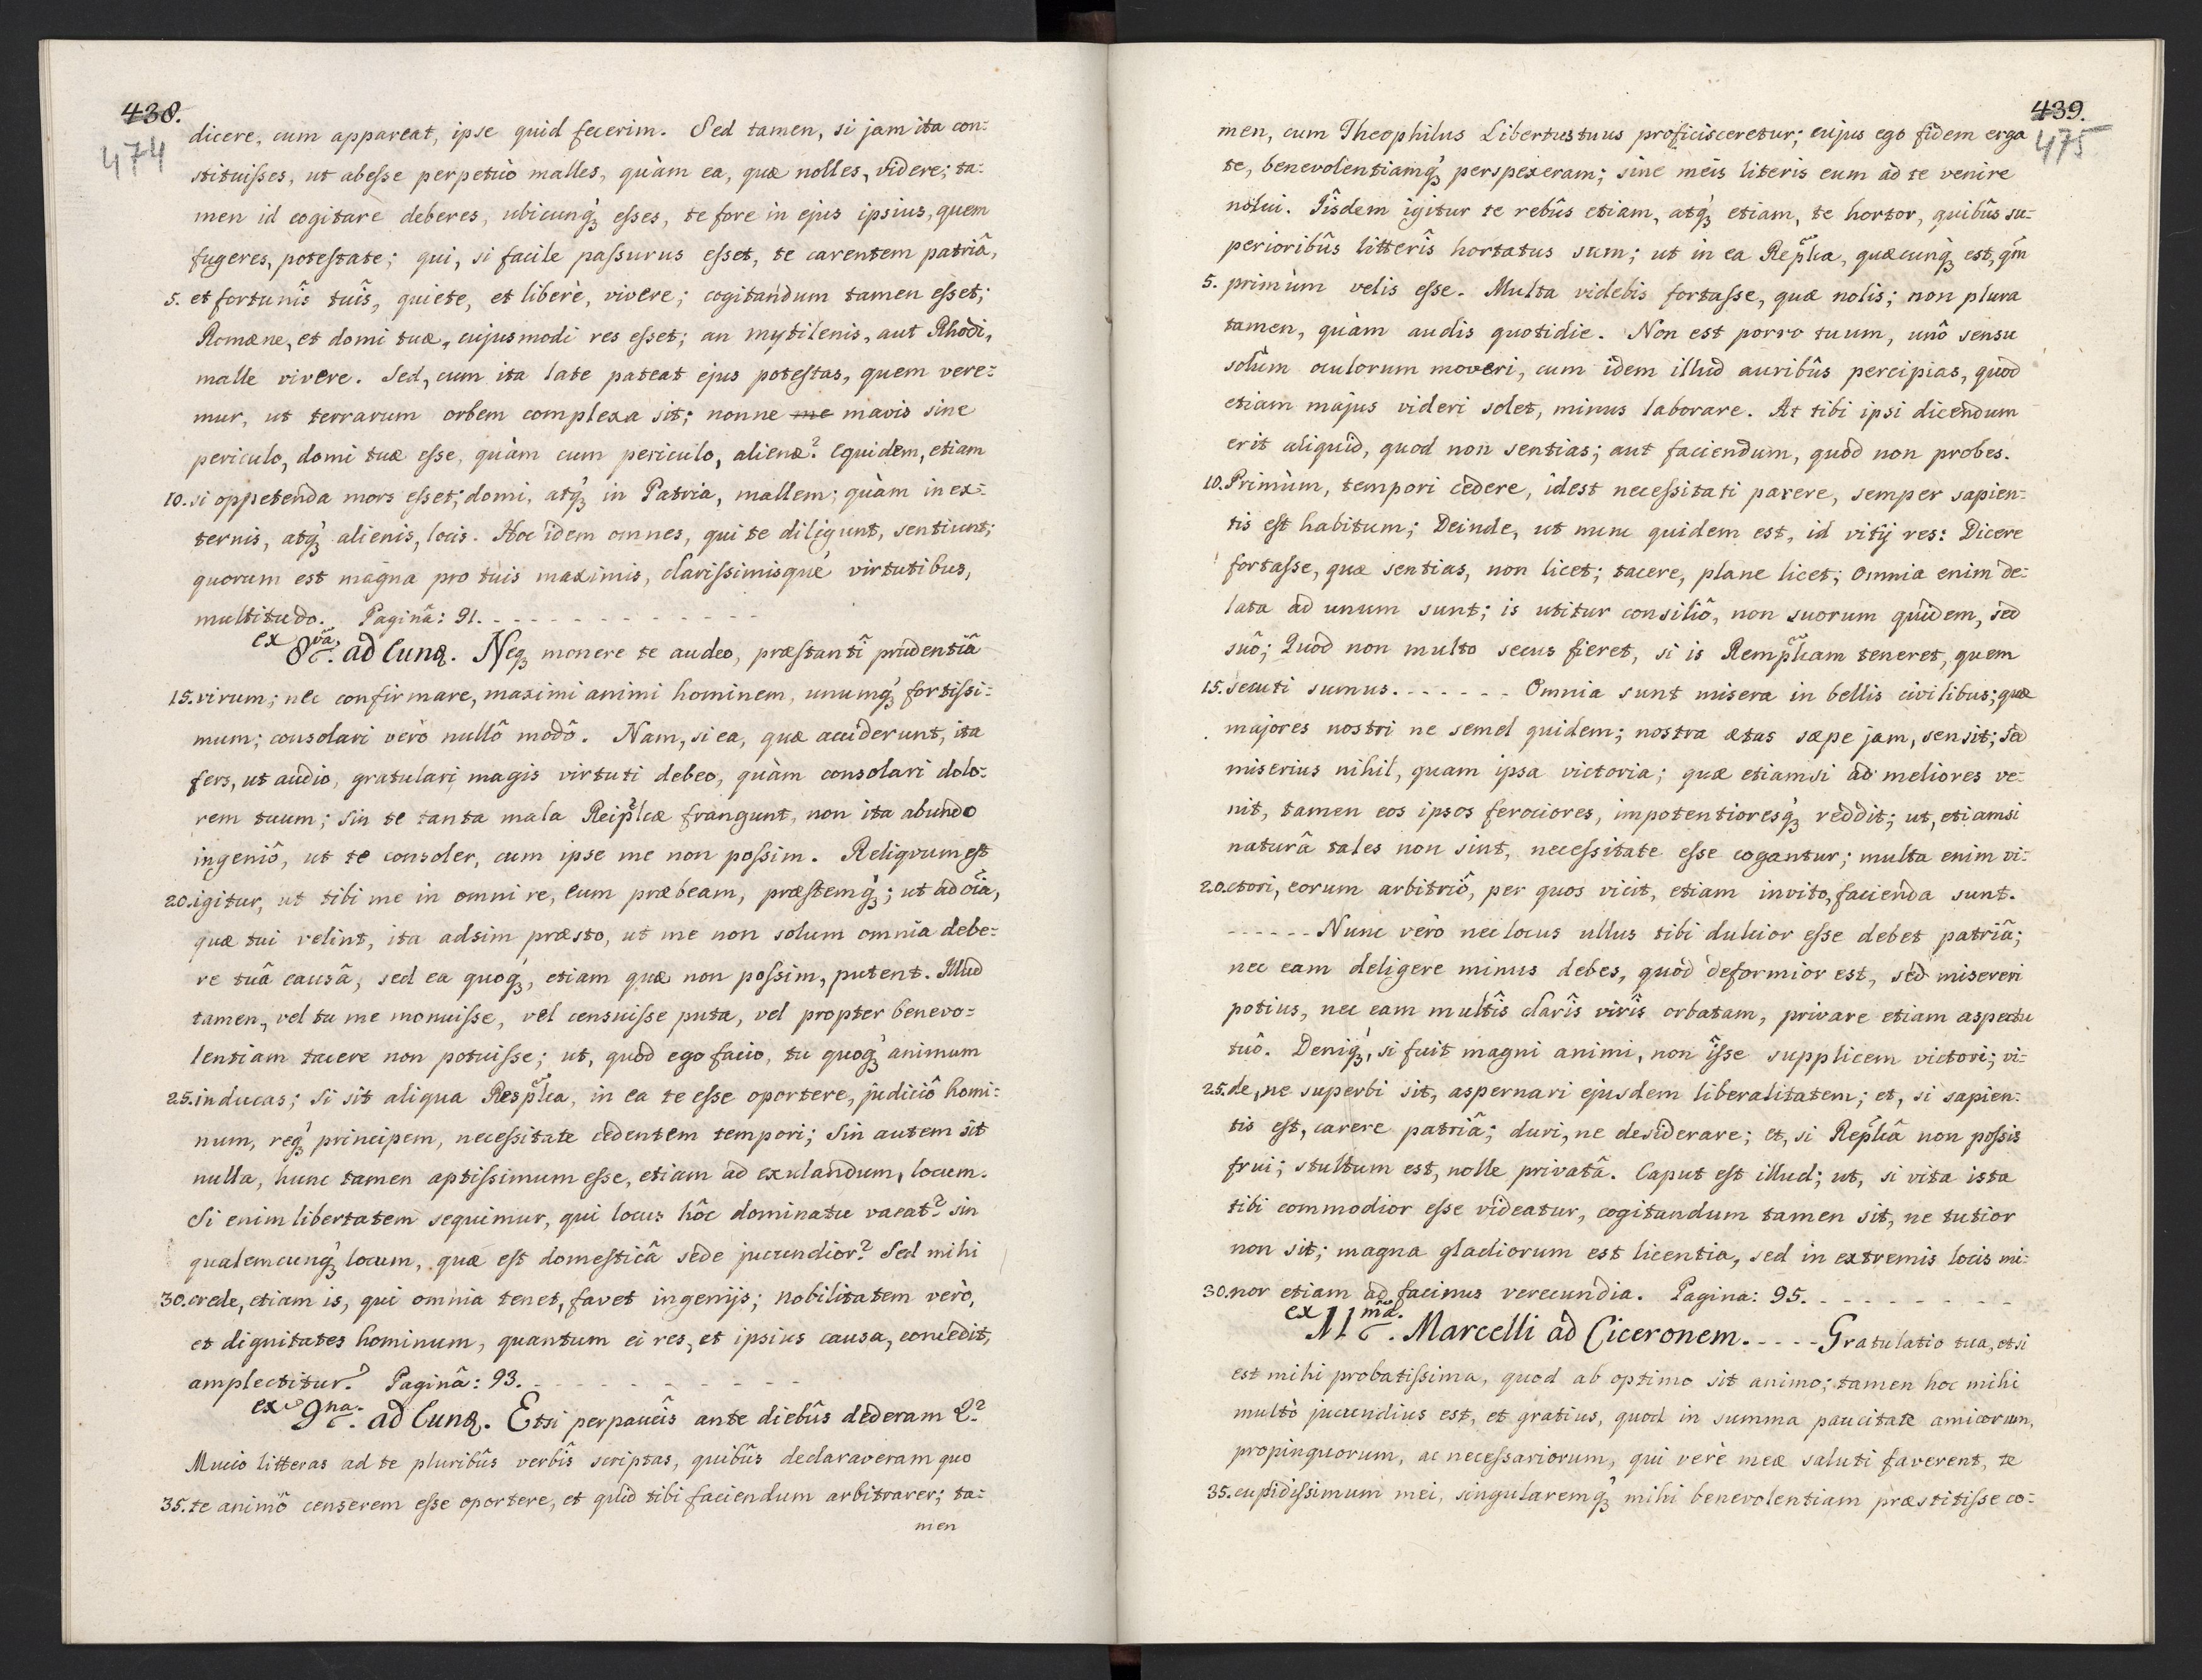 438.
474
dicere, cum appareat, ipse quid fecerim. Sed tamen, si jam ita con:
stituisses, ut abesse perpetuò malles, quàm ea, quæ nolles, videre; ta:
men id cogitare deberes, ubicunq́ꝫ esses, te fore in ejus ipsius, quem
fugeres, potestate; qui, si facile passurus esset, te carentem patriâ,
5. et fortunîs tuîs, quiete, et liberè, vivere; cogitandum tamen esset;
Romæne, et domi tuæ, cujusmodi res esset; an mytilenis, aut Rhodi,
malle vivere. Sed, cum ita late pateat ejus potestas, quem vere:
mur, ut terrarum orbem complexa sit; nonne me mavis sine
periculo, domi tuæ esse, quàm cum periculo, alienæ? Equidem, etiam
10. si oppetenda mors esset; domi, atq́ꝫ in Patria, mallem; quàm in ex:
ternis, atq́ꝫ alienis, locis. Hoc idem omnes, qui te diligunt, sentiunt;
quorum est magna pro tuis maximis, clarissimisque virtutibus,
multitudo. Paginâ: 91. - - - - - - - - - - - -
ex 8vâ. ad Eund. Neqꝫ monere te audeo, præstantî prudentiâ
15. virum; nec confirmare, maximi animi hominem, unumq́ꝫ fortissi:
mum; consolari verò nullô modô. Nam, si ea, quæ acciderunt, ita
fers, ut audio, gratulari magis virtuti debeo, quàm consolari dolo:
rem tuum; Sin te tanta mala Reiplcæ frangunt, non ita abundo
ingeniô, ut te consoler, cum ipse me non possim. Reliqvum est
20. igitur, ut tibi me in omni re, eum præbeam, præstemq́ꝫ; ut ad oîa,
quæ tui velint, ita adsim præsto, ut me non solum omnia debe:
re tuâ causâ, sed ea quoq́ꝫ, etiam quæ non possim, putent. Illud
tamen, vel tu me monuisse, vel censuisse puta, vel propter benevo=
lentiam tacere non potuisse; ut, quòd ego facio, tu quoq́ꝫ animum
25. inducas; Si sit aliqua Resplca, in ea te esse oportere, judiciô homi:
num, req́ꝫ principem, necessitate cedentem tempori; Sin autem sit
nulla, hunc tamen aptissimum esse, etiam ad exulandum, locum.
Si enim libertatem sequimur, qui locus hôc dominatu vacat? sin
qualemcunq́ꝫ locum, quæ est domesticâ sede jucundior? Sed mihi
30. crede, etiam is, qui omnia tenet, favet ingenijs; nobilitatem verò,
et dignitates hominum, quantum ei res, et ipsius causa, concedit,
amplectitur? Paginâ: 93. - - - - - - - - - -
ex 9na. ad Eund. Etsi perpaucîs ante diebûs dederam Q?
Mucio litteras ad te pluribûs verbîs scriptas, quibûs declaraveram quo
35. te animô censerem esse oportere, et quid tibi faciendum arbitrarer; ta:
men
439.
475
men, cum Theophilus Libertus tuus proficisceretur; cujus ego fidem erga
te, benevolentiamq́ꝫ perspexeram; sine meis literis eum ad te venire
nolui. Iîsdem igitur te rebûs etiam, atq́ꝫ etiam, te hortor, quibûs su:
perioribûs litterîs hortatus sum; ut in ea Replca, quæcunq́ꝫ est, qm̃
5. primùm velis esse. Multa videbis fortasse, quæ nolis; non plura
tamen, quàm audis quotidie. Non est porro tuum, unô sensu
solùm oculorum moveri, cum idem illud auribûs percipias, quod
etiam majus videri solet, minus laborare. At tibi ipsi dicendum
erit aliquid, quod non sentias; aut faciendum, quòd non probes.
10. Primùm, tempori cedere, idest necessitati parere, semper sapien:
tis est habitum; Deinde, ut nunc quidem est, id vitij res: Dicere
fortasse, quæ sentias, non licet; tacere, plane licet; Omnia enim de:
lata ad unum sunt; is utitur consiliô, non suorum quidem, sed
suô; Quòd non multo secus fieret, si is Remplcam teneret, quem
15. secuti sumus. - - - - - - Omnia sunt misera in bellis civilibus; quæ
majores nostri ne semel quidem; nostra ætas sæpe jam, sensit; sed
miserius nihil, quam ipsa victoria; quæ etiamsi ad meliores ve:
nit, tamen eos ipsos ferociores, impotentioresq́ꝫ reddit; ut, etiamsi
naturâ tales non sint, necessitate esse cogantur; multa enim vi:
20. ctori, eorum arbitriô, per quos vicit, etiam invito, facienda sunt.
- - - - - - Nunc verò nec locus ullus tibi dulcior esse debet patriâ;
nec eam deligere minus debes, quòd deformior est, sed misereri
potius, nec eam multîs clarîs virîs orbatam, privare etiam aspectu
tuô. Deniq́ꝫ, si fuit magni animi, non îsse supplicem victori; vi:
25. de, ne superbi sit, aspernari ejusdem liberalitatem; et, si sapien:
tis est, carere patriâ; duri, ne desiderare; et, si Replcâ non possis
frui; stultum est, nolle privatâ. Caput est illud; ut, si vita ista
tibi commodior esse videatur, cogitandum tamen sit, ne tutior
non sit; magna gladiorum est licentia, sed in extremis locis mi:
30. nor etiam ad facinus verecundia. Pagina: 95. - - - - - - - -
ex 11mâ. Marcelli ad Ciceronem. - - - - - Gratulatio tua, etsi
est mihi probatissima, quod ab optimo sit animo; tamen hoc mihi
multò jucundius est, et gratius, quod in summa paucitate amicorum,
propinquorum, ac necessariorum, qui verè meæ saluti faverent, te
35. cupidissimum mei, singularemq́ꝫ mihi benevolentiam præstitisse co: